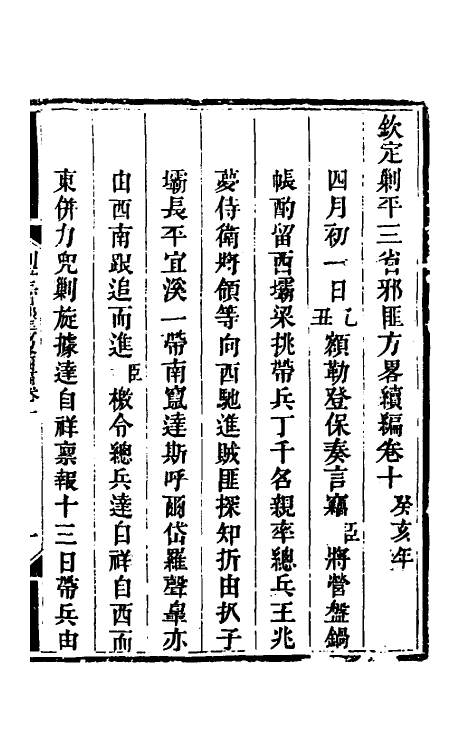 欽定剿平三省邪匪方畧續編卷十 癸亥年
四月初一日乙丑額勒登保奏言竊臣將營盤鍋
帳酌留西壩梁挑帶兵丁千名親率總兵王兆
夢侍衛將領等向西馳進賊匪探知折由扒子
壩長平宜溪一帶南竄達斯呼爾岱羅聲臯亦
由西南跟追而進臣檄令總兵達自祥自西而
東併力兜剿旋據達自祥稟報十三日帶兵由